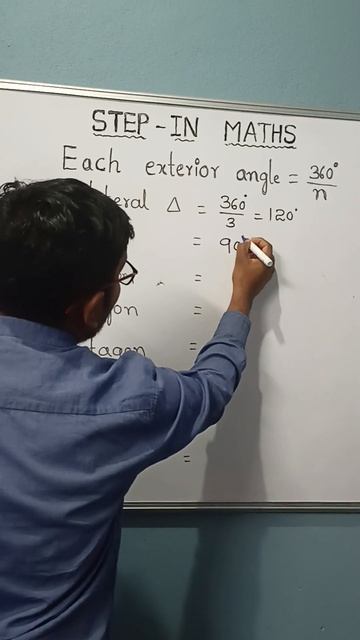 STEP-IN MATHS
Each exterior angle = 360°/n
lateral Δ = 360°/3 = 120°
= 90
=
=
tagon =
=